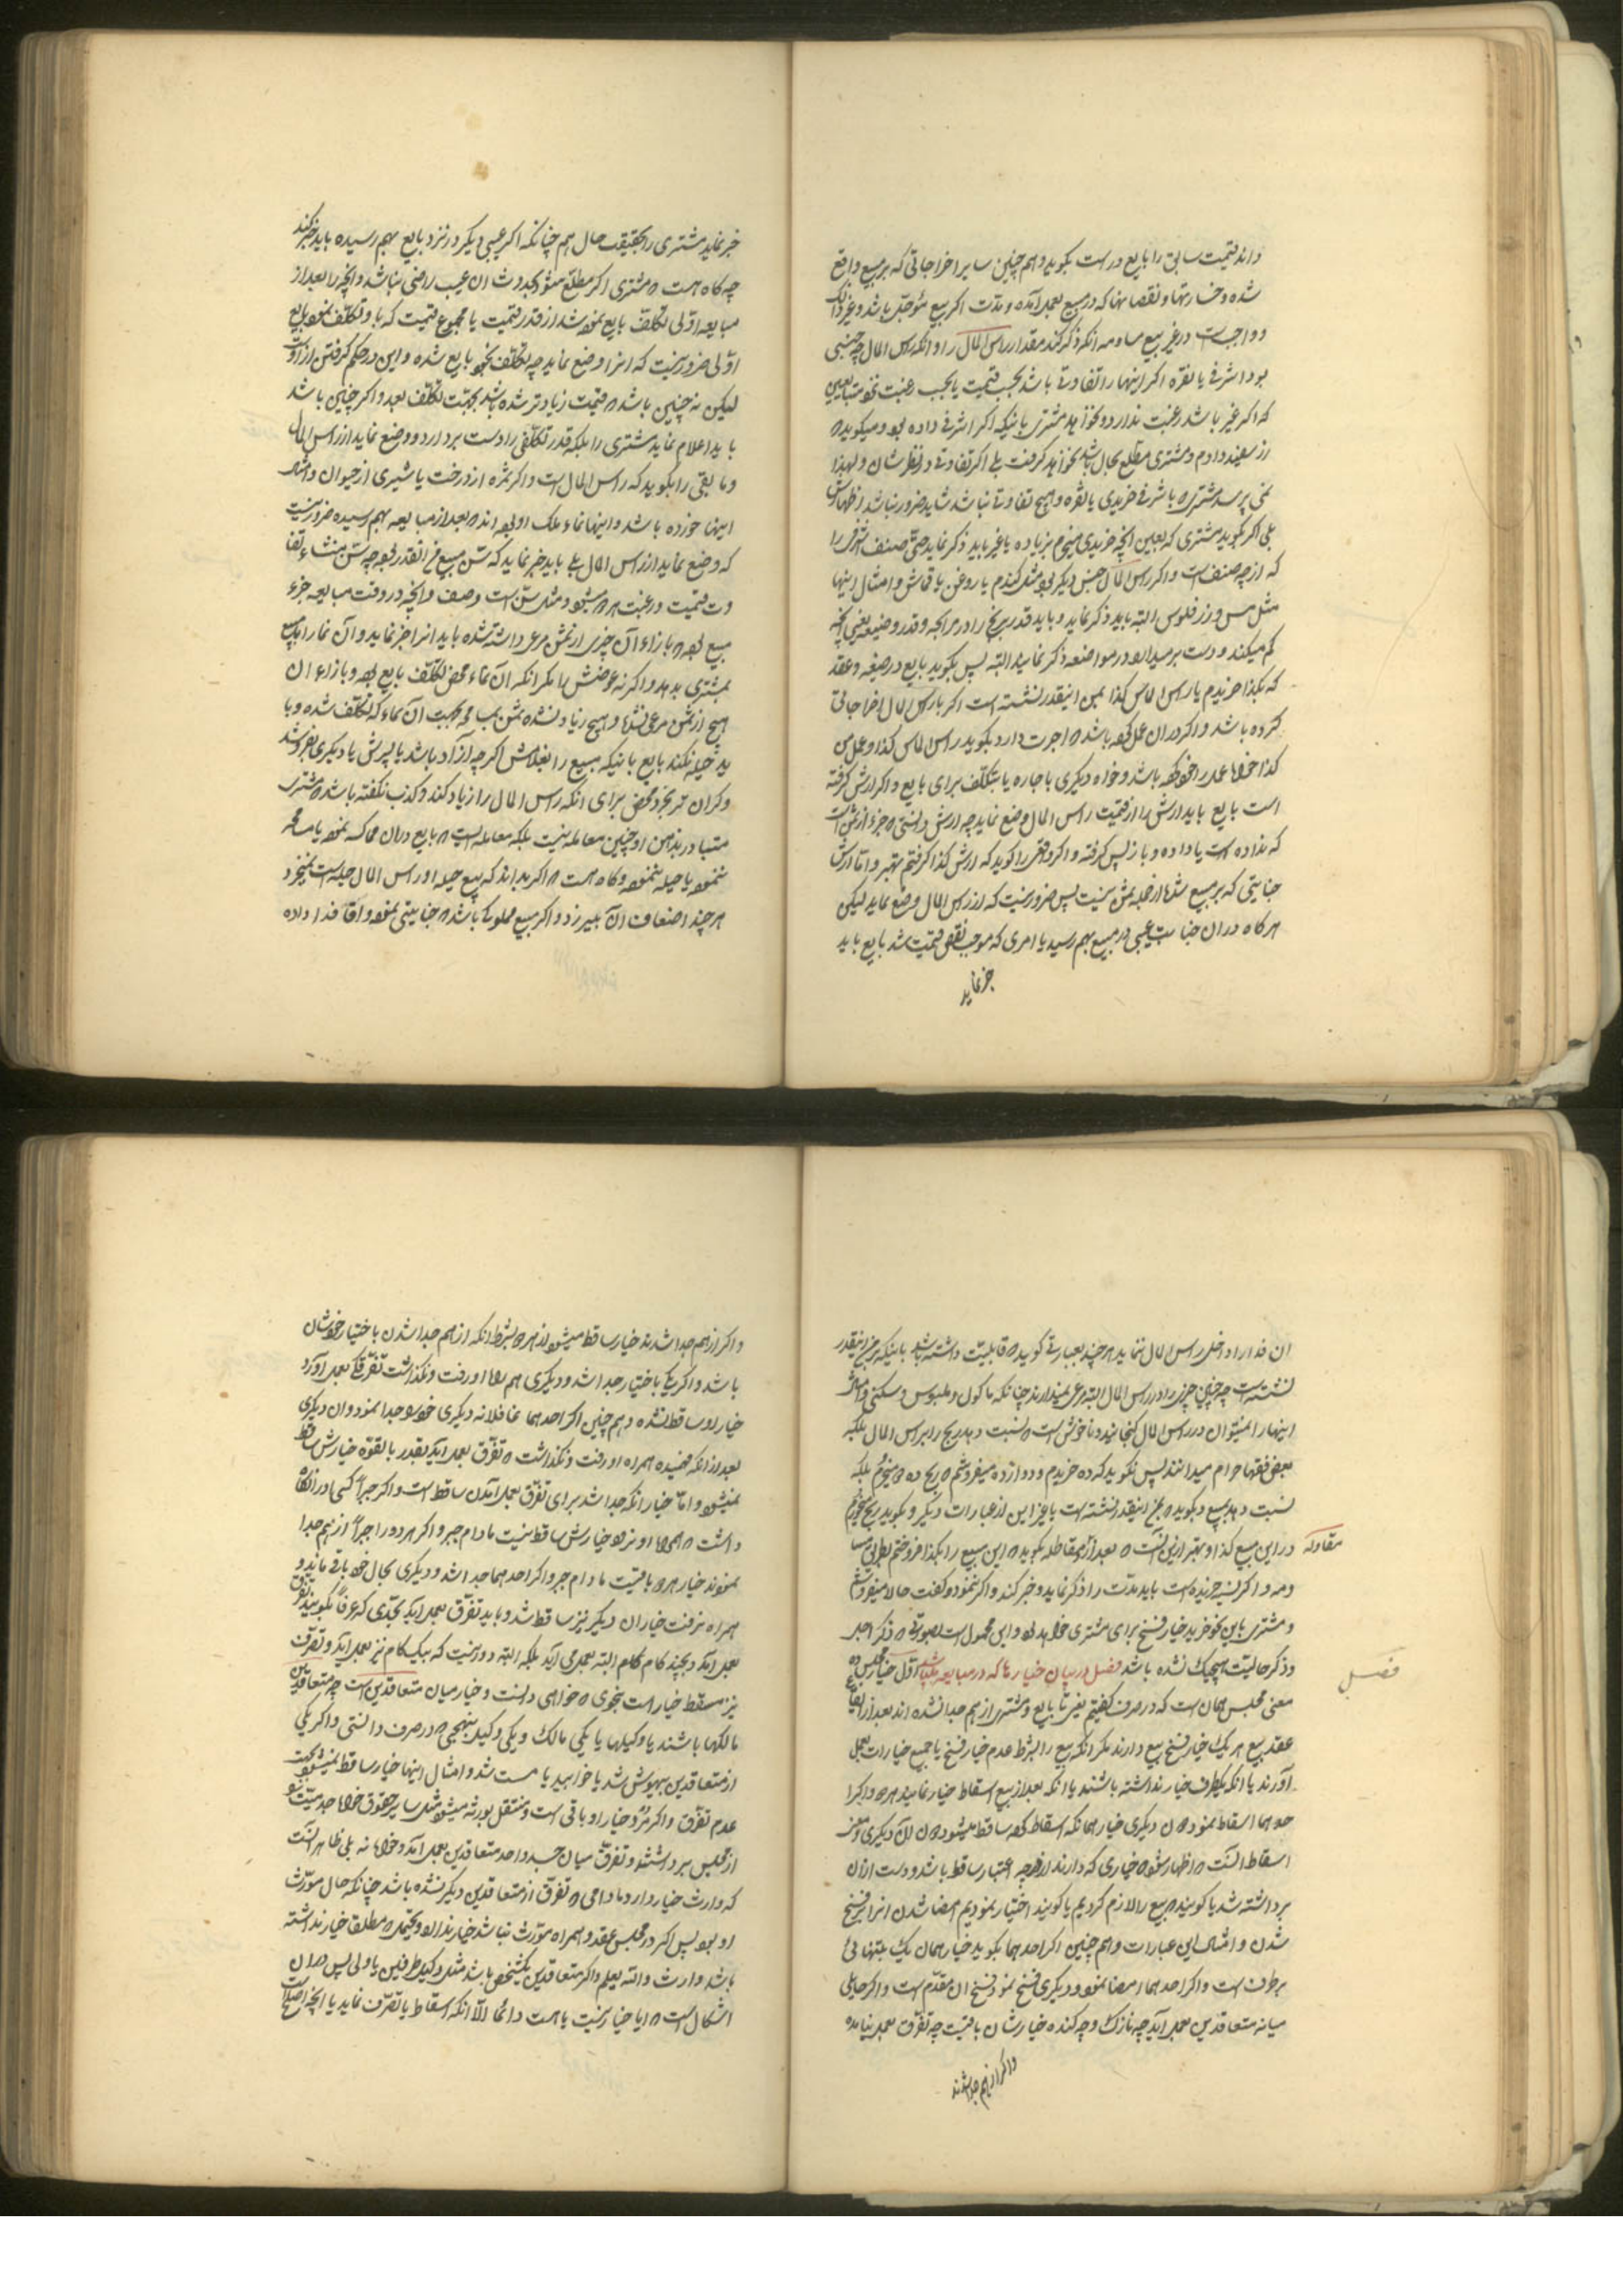 داند قیمت سابق را بایع درست بکوید و هم چنین سایر اخراجاتی که بر مبیع واقع
شده و خسارتها و نقصانها که در مبیع بعمل آمده و مدت اکر بیع مؤجل باشد و غیر ذالک
و واجبست در غیر بیع مساومه انکه ذکر کند مقدار راس المال را و انکه راس المال چه جنسی
بود اشرفی یا نقره اکر اینها را تفاوتی باشد بحسب قیمت یا بحسب رغبت
که اکر غیر باشد رغبت ندارد و نخواهد مشتری بانیکه اکر اشرفی داده بود و میکوید که
از سفید دادم و مشتری مطلع بحال باشد نخواهد کرفت بلی اکر تفاوتی در نظرشان و لهذا
نمی پرسد مشتری که باشرفی خریدی یا نقره و هیچ تفاوتی نباشد شاید ضرور نباشد اظهارش
بلی اکر بکوید مشتری که بعین انچه خریدی میخرم بزیاده یا غیر باید ذکر نماید حتی صنف اشرفی را
که از چه صنف است و اکر راس المال جنس دیکر بود مثل کندم یا روغن یا قماش و امثال اینها
مثل مس و زر فلوس البته باید ذکر نماید و باید قدر ربح را در مرابحه و قدر وضیعه یعنی انچه
کم میکند و دست برمیدارد در مواضعه ذکر نماید البته پس بکوید بایع در صیغه و عقد
که بکذا خریدم یا راس المالش کذا بمن اینقدر نشسته است اکر بار راس المال اخراجاتی
کرده باشد و اکر در ان عمل کرده باشد که اجرت دارد بکوید راس المالش کذا و عمل من
کذا خواه عمل را خود کرده باشد و خواه دیکری باجاره یا بتکلف برای بایع و اکر ارش کرفته
است بایع باید ارش را از قیمت راس المال وضع نماید چه ارش دانستی که جزء از ثمن است
که نداده است یا داده و باز پس کرفته و اکر وضعی را کوید که ارش کذا کرفتم بهتر و اما ارش
جنایتی که بر مبیع شد از جمله ثمن نیست پس ضرور نیست که از راس المال وضع نماید لیکن
هر کاه در ان جنایت عیبی در مبیع بهم رسید یا امری که موجب نقص قیمت شد بایع باید
خبر نماید
خبر نماید مشتری را بحقیقت حال هم چنانکه اکر عیبی دیکر در نزد بایع بهم رسیده باید خبر کند
چه کاه هست که مشتری اکر مطلع میشود بحدوث ان عیب راضی نباشد و انچه را بعد از
مبایعه اولی تکلف بایع نموده شد از قدر قیمت یا مجموع قیمت که باو تکلف نموده بایع
اولی ضرور نیست که انرا وضع نماید چه تکلف بخود بایع شده و این در حکم کرفتن ازوست
لیکن نه چنین باشد که قیمت زیادتر شده باشد بجهت تکلف بعد و اکر چنین باشد
باید اعلام نماید مشتری را بلکه قدر تکلفی را دست بردارد و وضع نماید از راس المال
و ما بقی را بکوید که راس المال است و اکر ثمره از درخت یا شیری از حیوان و امثال
اینها خورده باشد و اینها نماء ملک او بوده اند که بعد از مبایعه بهم رسیده ضرور نیست
که وضع نماید از راس المال بلی باید خبر نماید که سن مبیع فی انقدر بوده چه سن منشاء تفا
وت قیمت و رغبت هر دو میشود و مثل سن است وصف و انچه در وقت مبایعه جزء
مبیع بوده که بازاء آن چیزی از ثمن مرعی داشته شده باید انرا خبر نماید و آن نما را باید
بمشتری بدهد و اکر نه عوضش را مکر انکه آن نماء محض تکلف بایع بوده و بازاء ان
هیچ از ثمن مرعی نشد و هیچ زیاد نشده ثمن بسبب آن نماء که تکلف شده و با
ید حیله نکند بایع بانیکه مبیع را بغلامش اکر چه آزاد باشد یا پسرش یا دیکری بفروشد
و کران تر بخرد محض برای انکه راس المال را زیاد کند و کذب نکفته باشد که مشتری
متبادر بذهن او چنین معامله نیست بلکه معامله ایست که بایع در ان مماکسه نموده یا مسامحه
ننموده یا حیله ننموده و کاه هست که اکر بداند که بیع حیله و راس المال حیله است نمیخرد
هر چند اضعاف آن بیرزد و اکر مبیع مملوک باشد که جنایتی نموده و اقا فدا داده
ان فدا را داخل راس المال ننماید هر چند بعبارتی کوید که قابلیت داشته باشد بانیکه بر من اینقدر
نشسته است چه چنین چیزی را در راس المال البته مرعی نمیدارند چنانکه ماکول و ملبوس و مسکنی و امثال
اینها را نمیتوان در راس المال کنجانید و ناخوش است که نسبت دهد ربح را براس المال بلکه
بعض فقها حرام میدانند پس نکوید که ده خریدم و دوازده میفروشم که ربح ده دو میخرم بلکه
نسبت دهد بمبیع و بکوید که بمن اینقدر نشسته است یا بغیر این از عبارات دیکر و بکوید ربح میخرم
در این مبیع کذا و بهتر ازین آنست که بعد از مقاطله بکوید که این مبیع را بکذا فروختم بطریق مسا
مقاوله
ومه و اکر نسیه خریده است باید مدت را ذکر نماید و خبر کند و اکر ننمود و کفت حالا میفروشم
و مشتری باین نحو خرید خیار فسخ برای مشتری خواهد بود و این محمول است بصورتی که ذکر اجل
و ذکر حالیت هیچیک نشده باشد فصل در بیان خیارها که در مبایعه میباشد اول خیار مجلس
فصل
معنی مجلس همان است که در صرف کفتیم یعنی تا بایع و مشتری از هم جدا نشده اند بعد از ایقاع
عقد بیع هر یک خیار فسخ بیع دارند مکر انکه بیع را بشرط عدم خیار فسخ یا جمیع خیارات بعمل
آورند یا انکه یکطرف خیار نداشته باشند یا انکه بعد از بیع اسقاط خیار نمایند هر دو و اکر ا
حدهما اسقاط نمود نه ان دیکری خیار همانکه اسقاط کرده ساقط میشود نه ان دیکری و معنی
اسقاط انست که اظهار شود که خیاری که دارند از درجه اعتبار ساقط باشد و دست ازان
برداشته شد یا کویند که بیع را لازم کردیم یا کویند اختیار نمودیم امضا شدن انرا بر فسخ
شدن و امثال این عبارات و هم چنین اکر احدهما بکوید خیار همان یک بتنهائی
برطرف است و اکر احدهما امضا نمود و دیکری فسخ نمود فسخ ان مقدم است و اکر حایلی
میانه متعاقدین بعمل آید چه نازک و چه کنده خیارشان باقیست چه تفرق بعمل نیامده
و اکر از هم جدا شدند
و اکر از هم جدا شدند خیار ساقط میشود از هر دو بشرط انکه از هم جدا شدن باختیار خودشان
باشد و اکر یکی باختیار جدا شد و دیکری هم همراه او رفت و نکذاشت تفرق بعمل آورد
خیار او ساقط نشده و هم چنین اکر احدهما غافلانه دیکری خود را جدا نمود و ان دیکری
بعد از انکه فهمیده همراه او رفت و نکذاشت که تفرق بعمل آید بقدر بالقوه خیارش ساقط
نمیشود و اما خیار انکه جدا شد برای تفرق بعمل آمدن ساقط است و اکر جبراً کسی او را نکاه
داشت که همراه او نرود خیارش ساقط نیست مادام جبر و اکر هر دو را جبراً از هم جدا
نمودند خیار هر دو باقیست مادام جبر و اکر احدهما جدا شد و دیکری بحال خود باقی ماند و
همراه نرفت خیار ان دیکر نیز ساقط شد و باید تفرق بعمل آید بحدی که عرفاً بکویند تفرق
بعمل آمد و بچند کام البته بعمل می آید بلکه البته دور نیست که بیک کام نیز بعمل آید و تصرف
نیز مسقط خیار است بنحوی که خواهی دانست و خیار میان متعاقدین است چه متعاقدین
مالکها باشند یا وکیلها یا یکی مالک و یکی وکیل بنهجی که در صرف دانستی و اکر یکی
از متعاقدین بیهوش شد یا خوابید یا مست شد و امثال اینها خیار ساقط نمیشود بجهت
عدم تفرق و اکر مرد خیار او باقی است و منتقل بورثه میشود مثل سایر حقوق خواه جسد میت
از مجلس برداشتند و تفرق میان جسد و احد متعاقدین بعمل آمد و خواه نه بلی ظاهر انست
که وارث خیار دارد مادامی که تفرق از متعاقدین دیکر نشده باشد چنانکه حال مورث
او بود پس اکر در مجلس عقد و همراه مورث نباشد خیار ندارد و محتمله که مطلقا خیار نداشته
باشد وارث والله یعلم و اکر متعاقدین یکشخص باشد مثل وکیل طرفین یا ولی پس در ان
اشکال است که ایا خیار نیست یا هست دائما الا انکه اسقاط یا تصرف نماید یا انچه